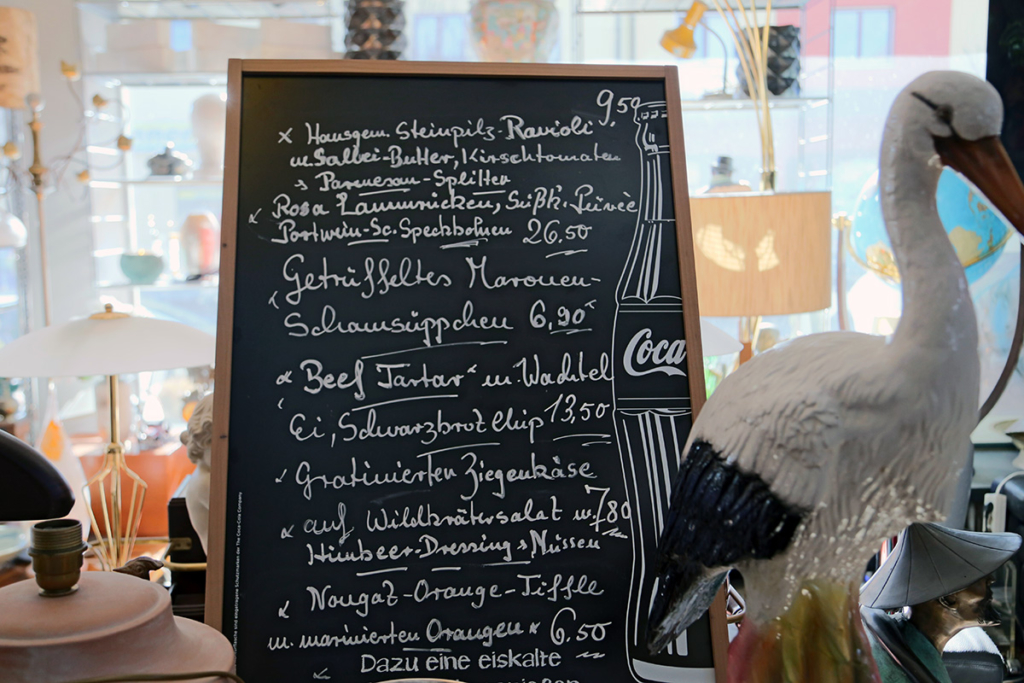 9,50
x Hausgem. Steinpilz-Ravioli
m. Salbei-Butter, Kirschtomaten
Parmesan-Splitter
Rosa Lammrücken, Süßk.-Püree
Portwein-Sc. Speckbohnen 26.50
Getrüffeltes Maronen-
Schaumsüppchen 6,90
Beef Tartar m. Wachtel
Ei, Schwarzbrot Chip 13,50
Gratinierten Ziegenkäse
auf Wildkräutersalat 7,80
Himbeer-Dressing & Nüssen
Nougat-Orange-Tiffle
m. marinierten Orangen 6.50
Dazu eine eiskalte
Coca